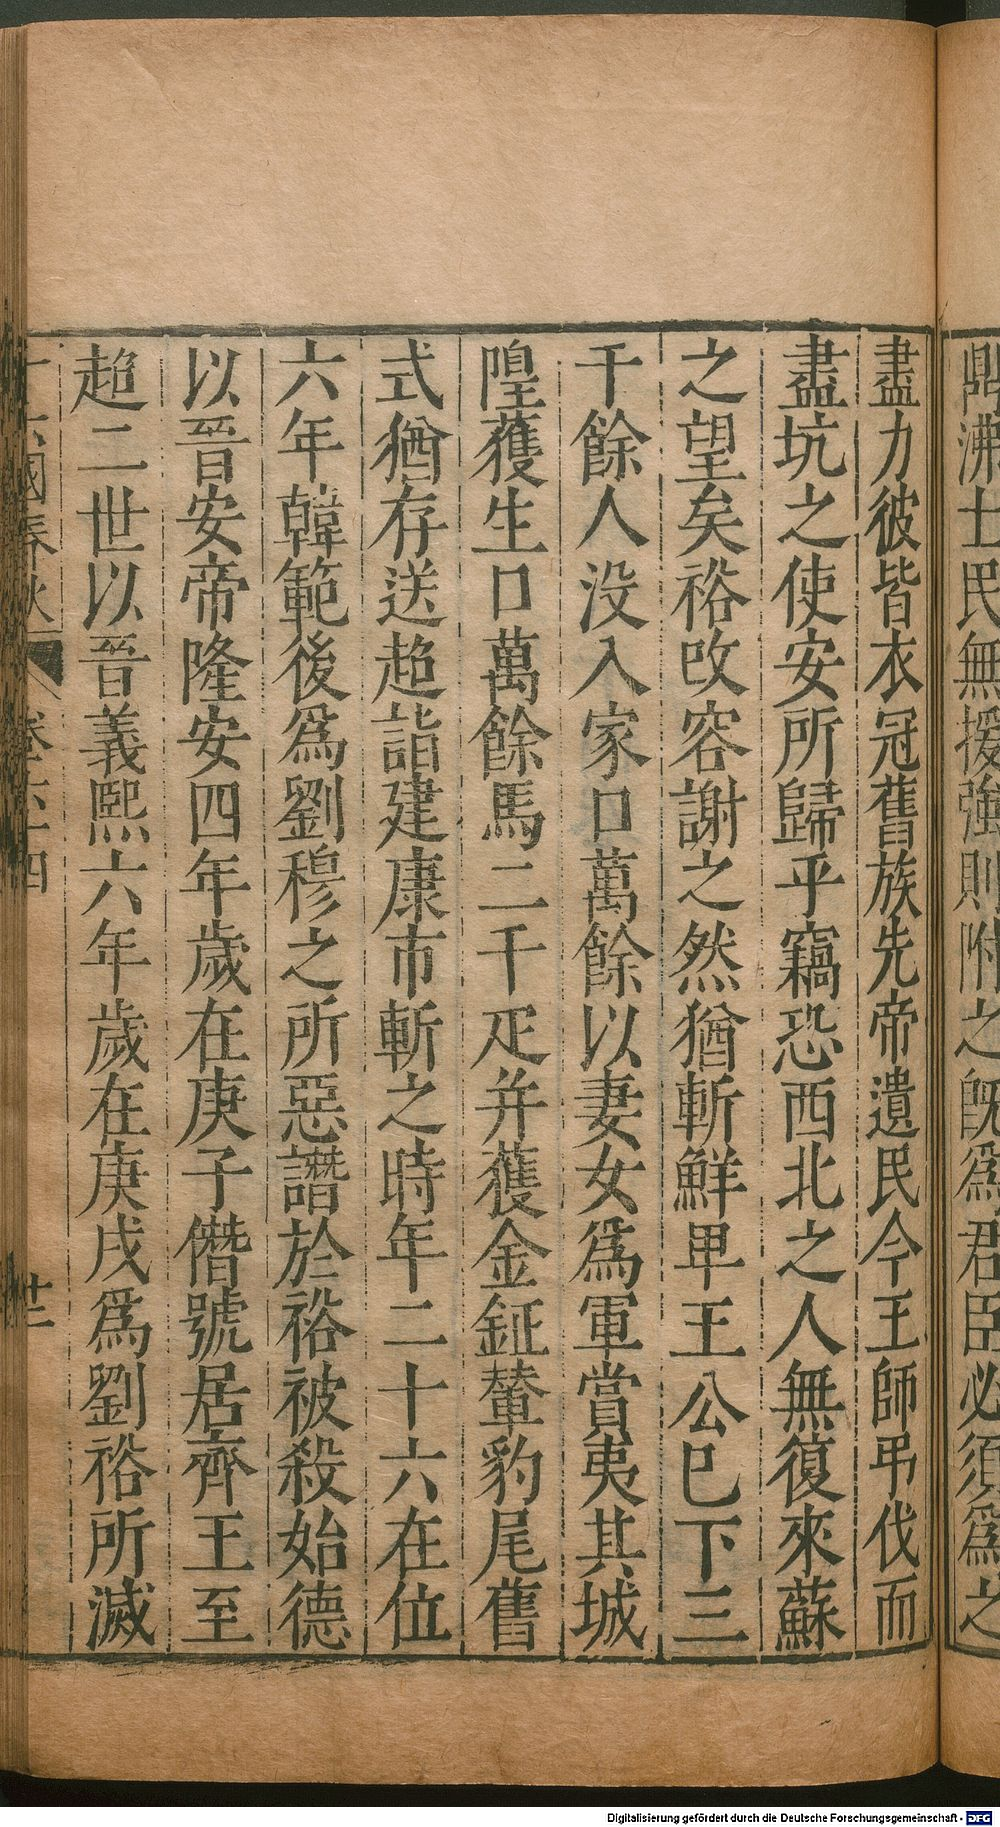 鼎沸士民無援強則附之旣爲君臣必須爲之
盡力彼皆衣冠舊族先帝遺民今王師弔伐而
盡坑之使安所歸乎竊恐西北之人無復來蘇
之望矣裕改容謝之然猶斬鮮卑王公巳下三
千餘人没入家口萬餘以妻女爲軍賞夷其城
隍獲生口萬餘馬二千疋并獲金鉦輦豹尾舊
式猶存送超詣建康市斬之時年二十六在位
六年韓範後爲劉穆之所惡譖於裕被殺始德
以晉安帝隆安四年歲在庚子僭號居齊王至
超二世以晉義熙六年歲在庚戌爲劉裕所滅
十六國春秋 卷六十四 廿二
Digitalisierung gefördert durch die Deutsche Forschungsgemeinschaft - DFG